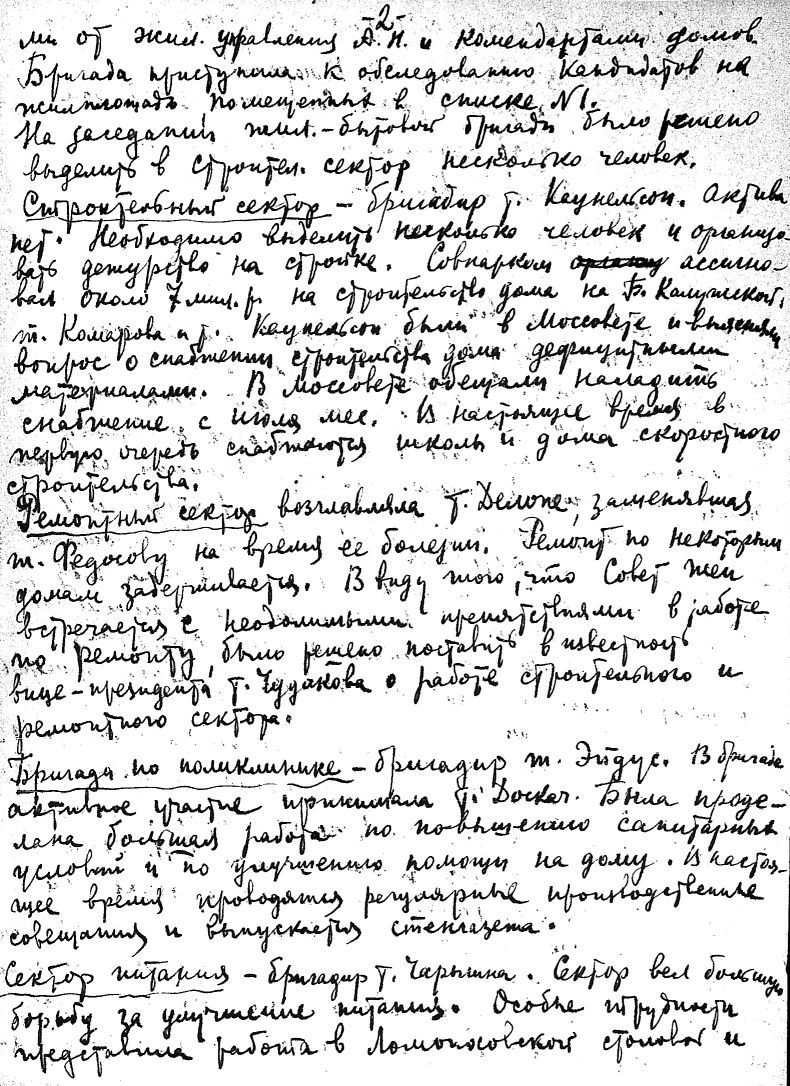 2
ми от жил. управления А.Н. и комендантами домов.
Бригада приступила к обследованию кандидатов на
жилплощадь помещенных в списке N1.
На заседании жил.-бытовой бригады было решено
выделить в строител. сектор несколько человек.
Строительный сектор – бригадир т. Каупельсон. Актива
нет. Необходимо выделить несколько человек и организо-
вать дежурство на стройке. Совнарком ассигно-
вал около 7 мил. р. на строительство дома на Б. Калужской.
т. Комарова и т. Каупельсон были в Моссовете и выясняли
вопрос о снабжении строительства дома дефицитными
материалами. В Моссовете обещали наладить
снабжение с июля мес. В настоящее время в
первую очередь снабжаются школы и дома скоростного
строительства.
Ремонтный сектор возглавляла т. Делоне, заменявшая
т. Федосову на время ее болезни. Ремонт по некоторым
домам задерживается. В виду того, что Совет жен
встречается с неодолимыми препятствиями в работе
по ремонту, было решено поставить в известность
вице-президента т. Чудакова о работе строительного и
ремонтного сектора.
Бригада по поликлинике – бригадир т. Эйдус. В бригаде
активное участие принимала т. Доскач. Была проде-
лана большая работа по повышению санитарных
условий и по улучшению помощи на дому. В настоя-
щее время проводятся регулярные производственные
совещания и выпускается стенгазета.
Сектор питания – бригадир т. Чарышна. Сектор вел большую
борьбу за улучшение питания. Особые трудности
представила работа в Ломоносовской столовой и